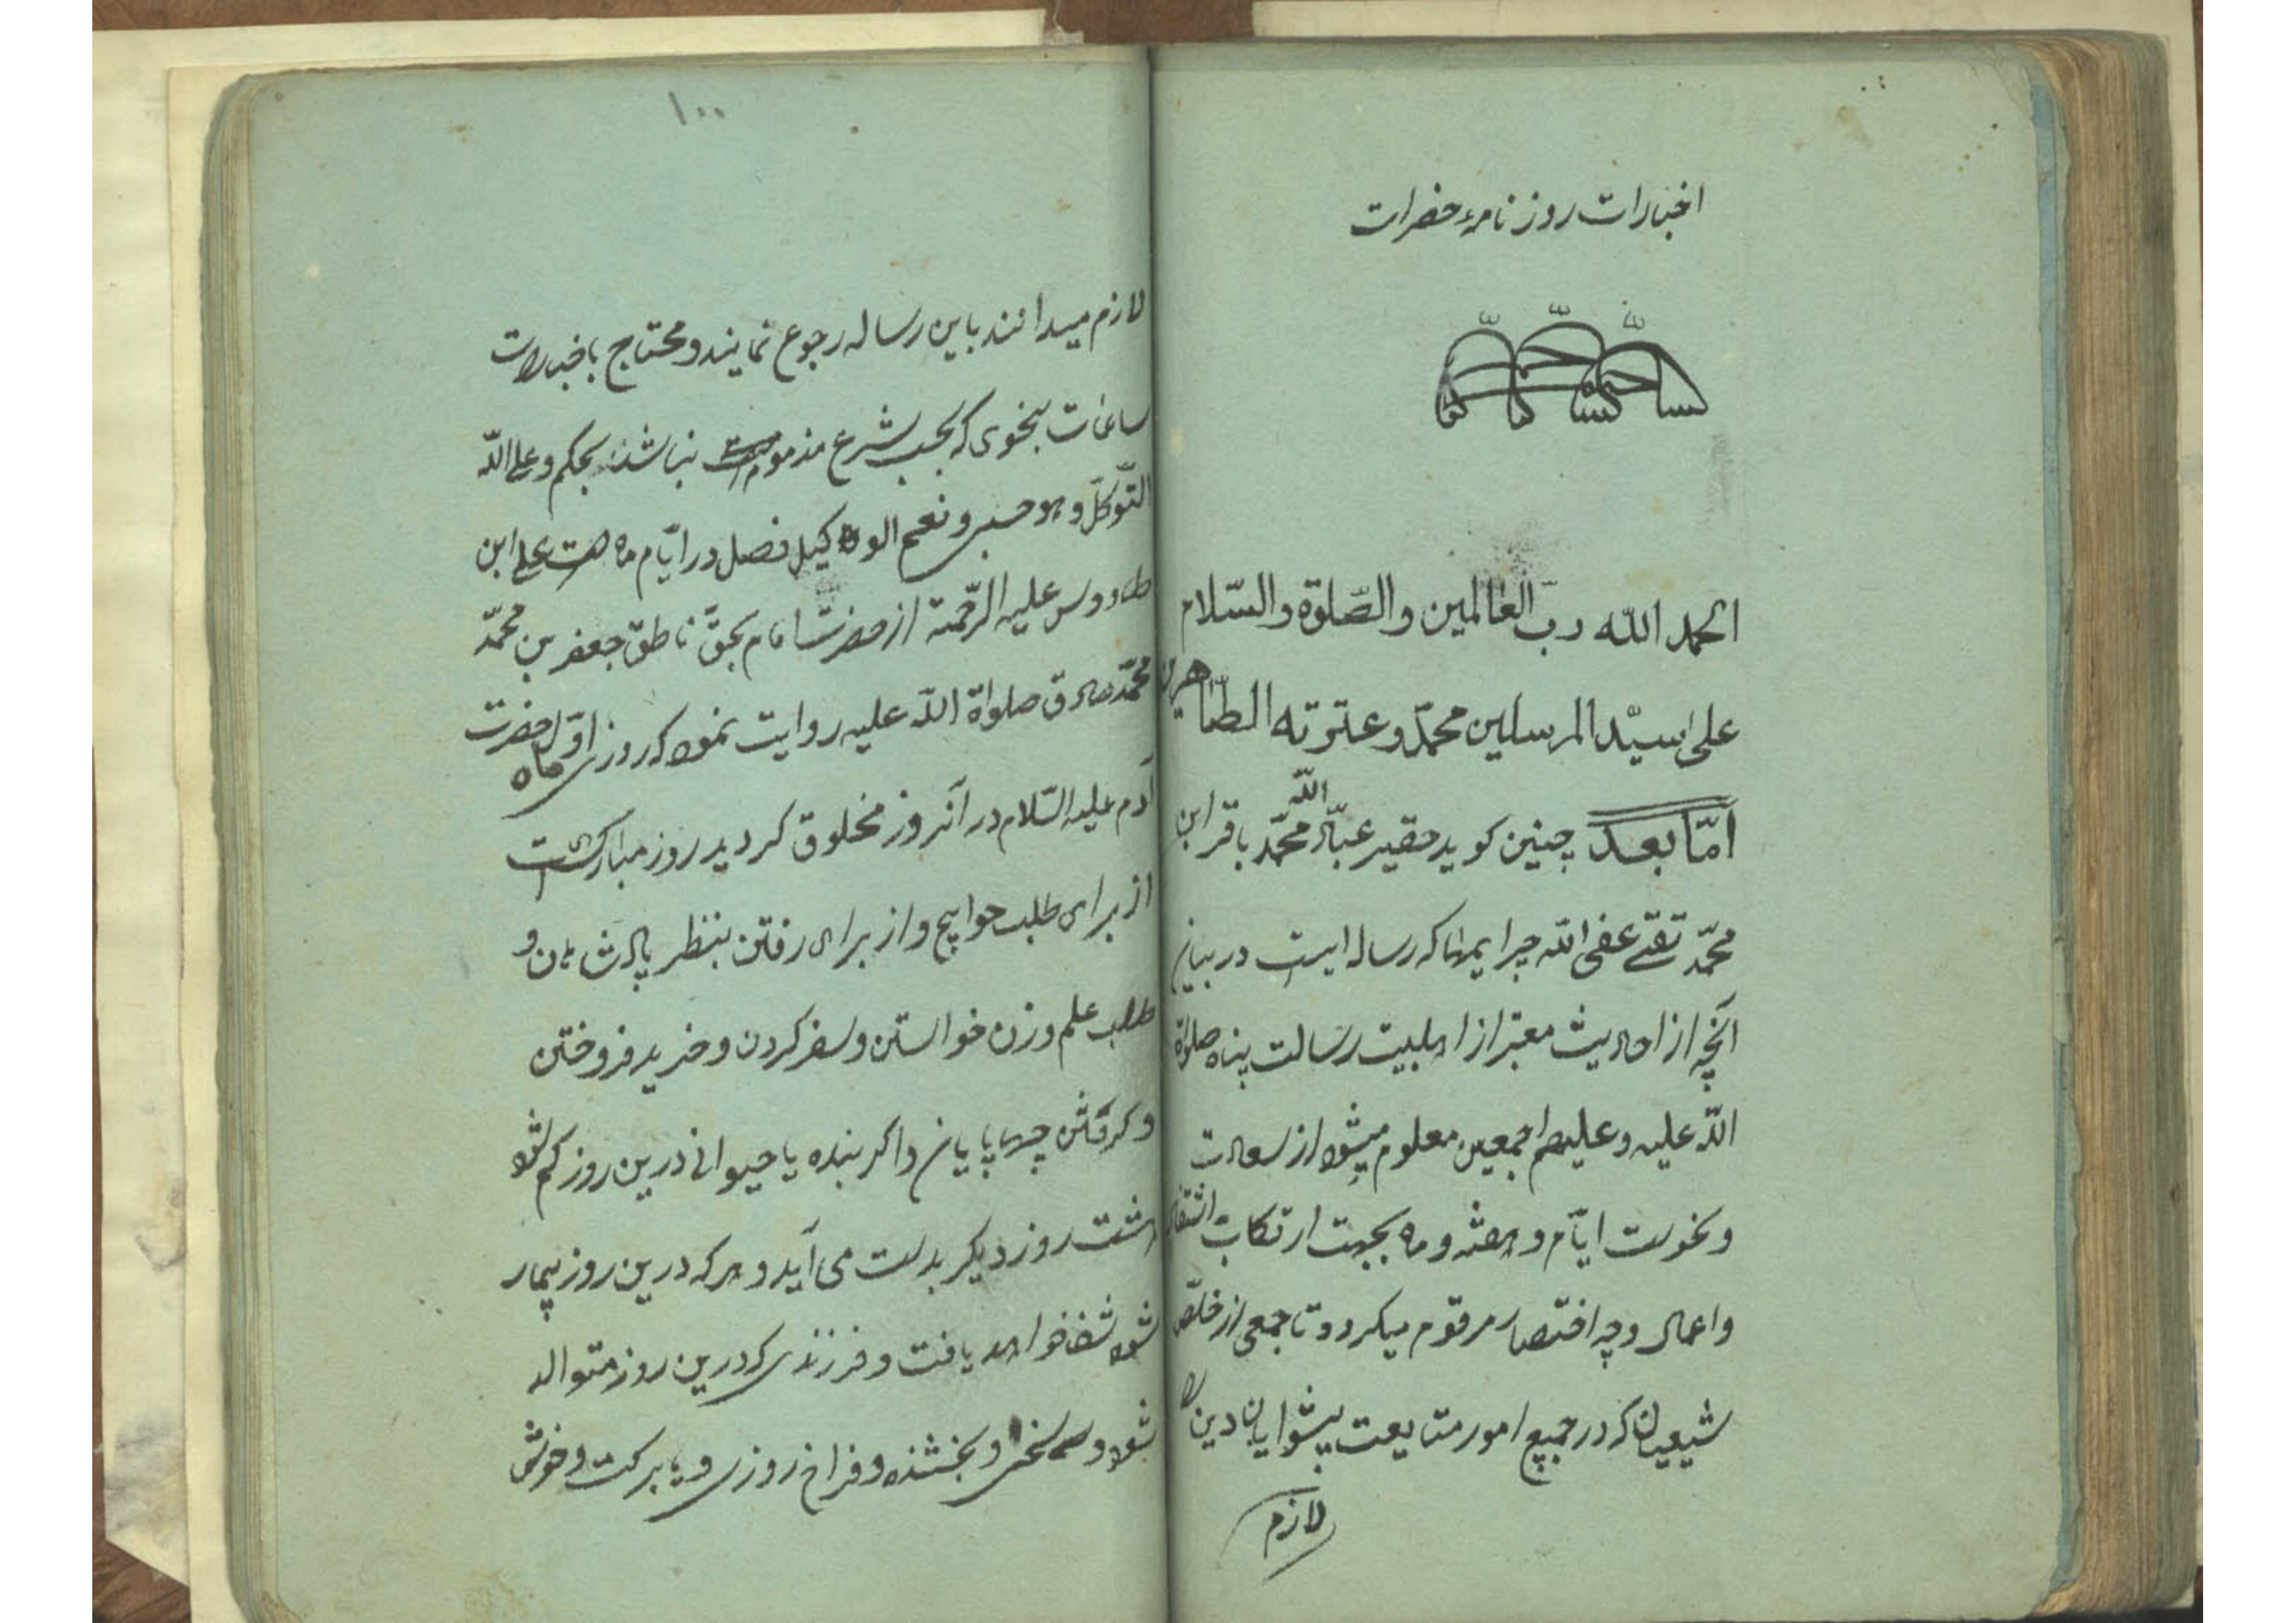 اخبارات روز نامهٔ حضرات
الحمد الله رب العالمین والصّلوة والسّلام
علی سیّد المرسلین محمّد و عترته الطّاهرین
امّا بعد چنین کوید حقیر عباد الله محمّد باقر ابن
محمّد تقی عفی الله جرایمهما که رساله ایست در بیان
آنچه از احادیث معتبر از اهلبیت رسالت پناه صلواة
الله علیه و علیهم اجمعین معلوم میشود از سعادت
و نحوست ایّام و هفته و ماه بجهت ارتکاب اشتغال
و اعمال وجه اختصار مرقوم میکردد تا جمعی از خلّص
شیعیان که در جمیع امور متابعت پیشوایان دین را
لازم
۱۰۰
لازم میدانند باین رساله رجوع نمایند و محتاج باخبارات
ساعات بنحوی که بحسب شرع مذمومست نباشند بحکم و علی الله
التّوکلّ و هو حسبی و نعم الوکیل فصل در ایّام ماه علی ابن
طاووس علیه الرّحمة از حضرت امام بحقّ ناطق جعفر بن محمّد
محمّد صادق صلواة الله علیه روایت نموده که روز اوّل ماه حضرت
آدم علیه السّلام در آنروز مخلوق کردید روز مبارکی است
از برای طلب حوایج و از برای رفتن بنظر پادشاهان و
طلب علم و زن خواستن و سفر کردن و خرید فروختن
و کرفتن چهارپایان و اکر بنده یا حیوانی درین روز کم شود
هشت روز دیکر بدست می آید و هر که درین روز بیمار
شود شفا خواهد یافت و فرزندی که درین روز متوالد
شود و سخی و بخشنده و فراخ روزی و با برکت و خوشی